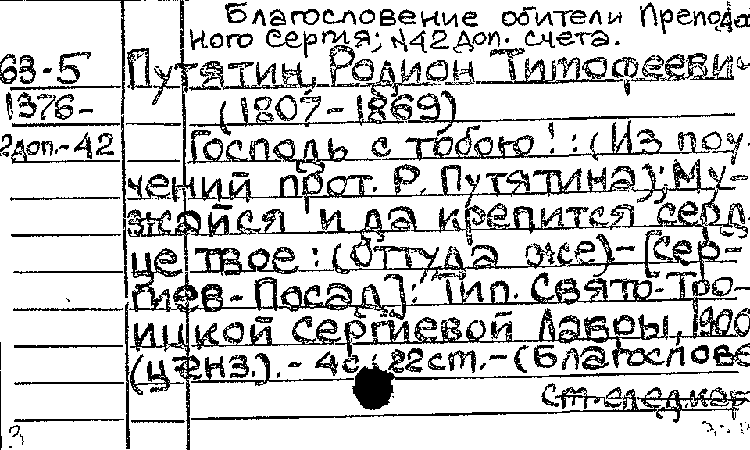 Благословение обители Преподо
ного Сергия; N42 доп. счета.
63-5 Путятин, Родион Тимофееви
1376- (1807-1869)
2доп.-42 Господь с тобою! : (Из поу-
чений прот. Р. Путятина); Му-
жайся и да крепится серд-
це твое : (Оттуда же) - [Сер-
гиев-Посад]: Тип. Свято-Тро-
ицкой Сергиевой Лавры, 1900
(ценз.). - 4с; 22 см. - (Благослове
См. след. кар
3